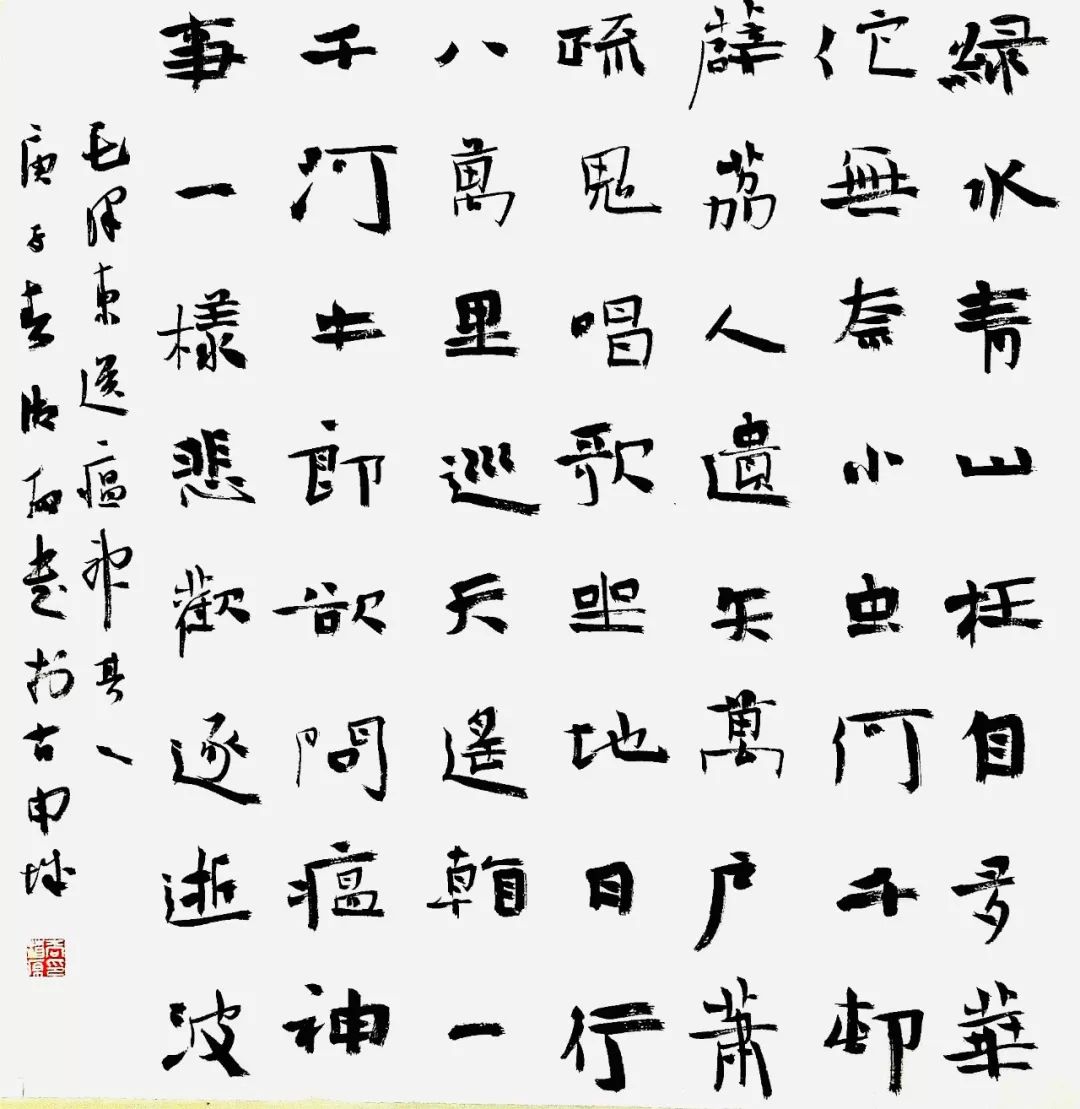 綠水青山枉自多華
佗無奈小虫何千邨
薜荔人遺矢萬户蕭
疏鬼唱歌坐地日行
八萬里巡天遙看一
千河牛郎欲問瘟神
事一樣悲歡逐逝波
毛澤東送瘟神其一
庚子春書於古申城